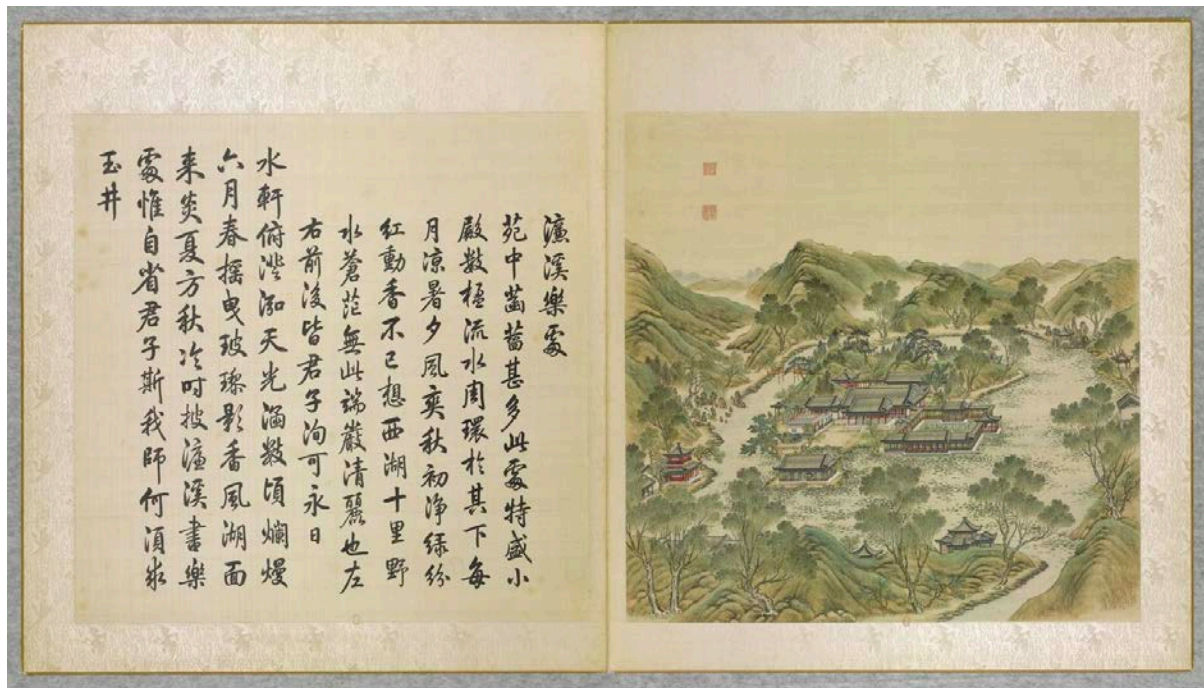 濂溪樂處
苑中菡萏甚多此處特盛小
殿數楹流水周環於其下每
月涼暑夕風爽秋初净緑紛
紅動香不已想西湖十里野
水蒼茫無此端嚴清麗也左
右前後皆君子洵可永日
水軒俯澄泓天光涵數頃爛熳
六月春摇曳玻瓈影香風湖面
来炎夏方秋冷时披濂溪書樂
處惟自省君子斯我師何須求
玉井